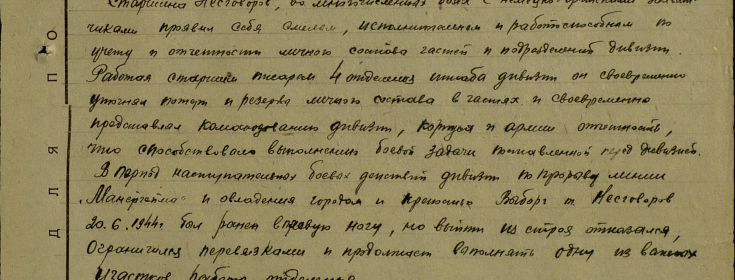 Старшина Несговоров, во многочисленных боях с немецко-
чиками проявил себя смелым, исполнительным и работоспособным по
учету и отчетности личного состава частей и подразделений дивизии.
Работая старшим писарем 4 отделения штаба дивизии он своевременно
уточнял потери и резерва личного состава в частях и своевременно
представлял командованию дивизии, корпуса и армии отчетность,
что способствовало выполнению боевой задачи поставленной перед дивизией.
В период наступательных боевых действий дивизии по прорыву линии
"Манергейма" и овладения городом и крепостью Выборг т. Несговоров
20.6.1944г был ранен в правую ногу, но выйти из строя отказался,
Ограничился перевязками и продолжает выполнять одну из важных
участков работы отделения
ДЛЯ ПО